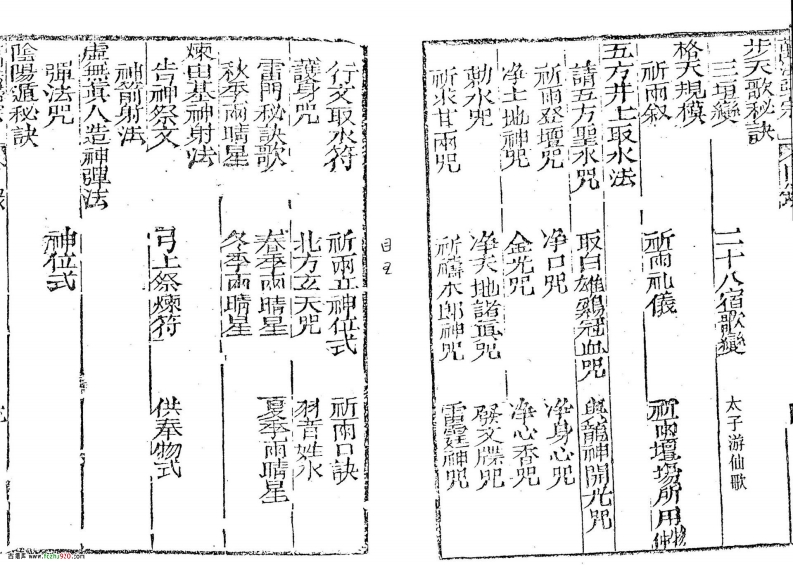 步天歌秘訣
三垣變 二十八宿歌變 太子游仙歌
格天規模
祈雨叙 祈雨礼儀 祈雨壇場所用物件
五方井上取水法
請五方聖水咒 取白雄鷄冠血咒 與龍神開光咒
祈雨登壇咒 净口咒 净身心咒
净土地神咒 金光咒 净心香咒
勅水咒 净天地諸真咒 發文牒咒
祈求甘雨咒 祈禱木郎神咒 雷霆神咒
目五
行文取水符 祈雨立神位式 祈雨口訣
護身咒 北方玄天咒 羽音姓水
雷門秘訣歌 春季雨晴星 夏季雨晴星
秋季雨晴星 冬季雨晴星
煉由基神射法
告神祭文 弓上祭煉符 供奉物式
神箭射法
虛無真人造神彈法
彈法咒 神位式
陰陽遁秘訣
古籍库 www.fczhj920.com